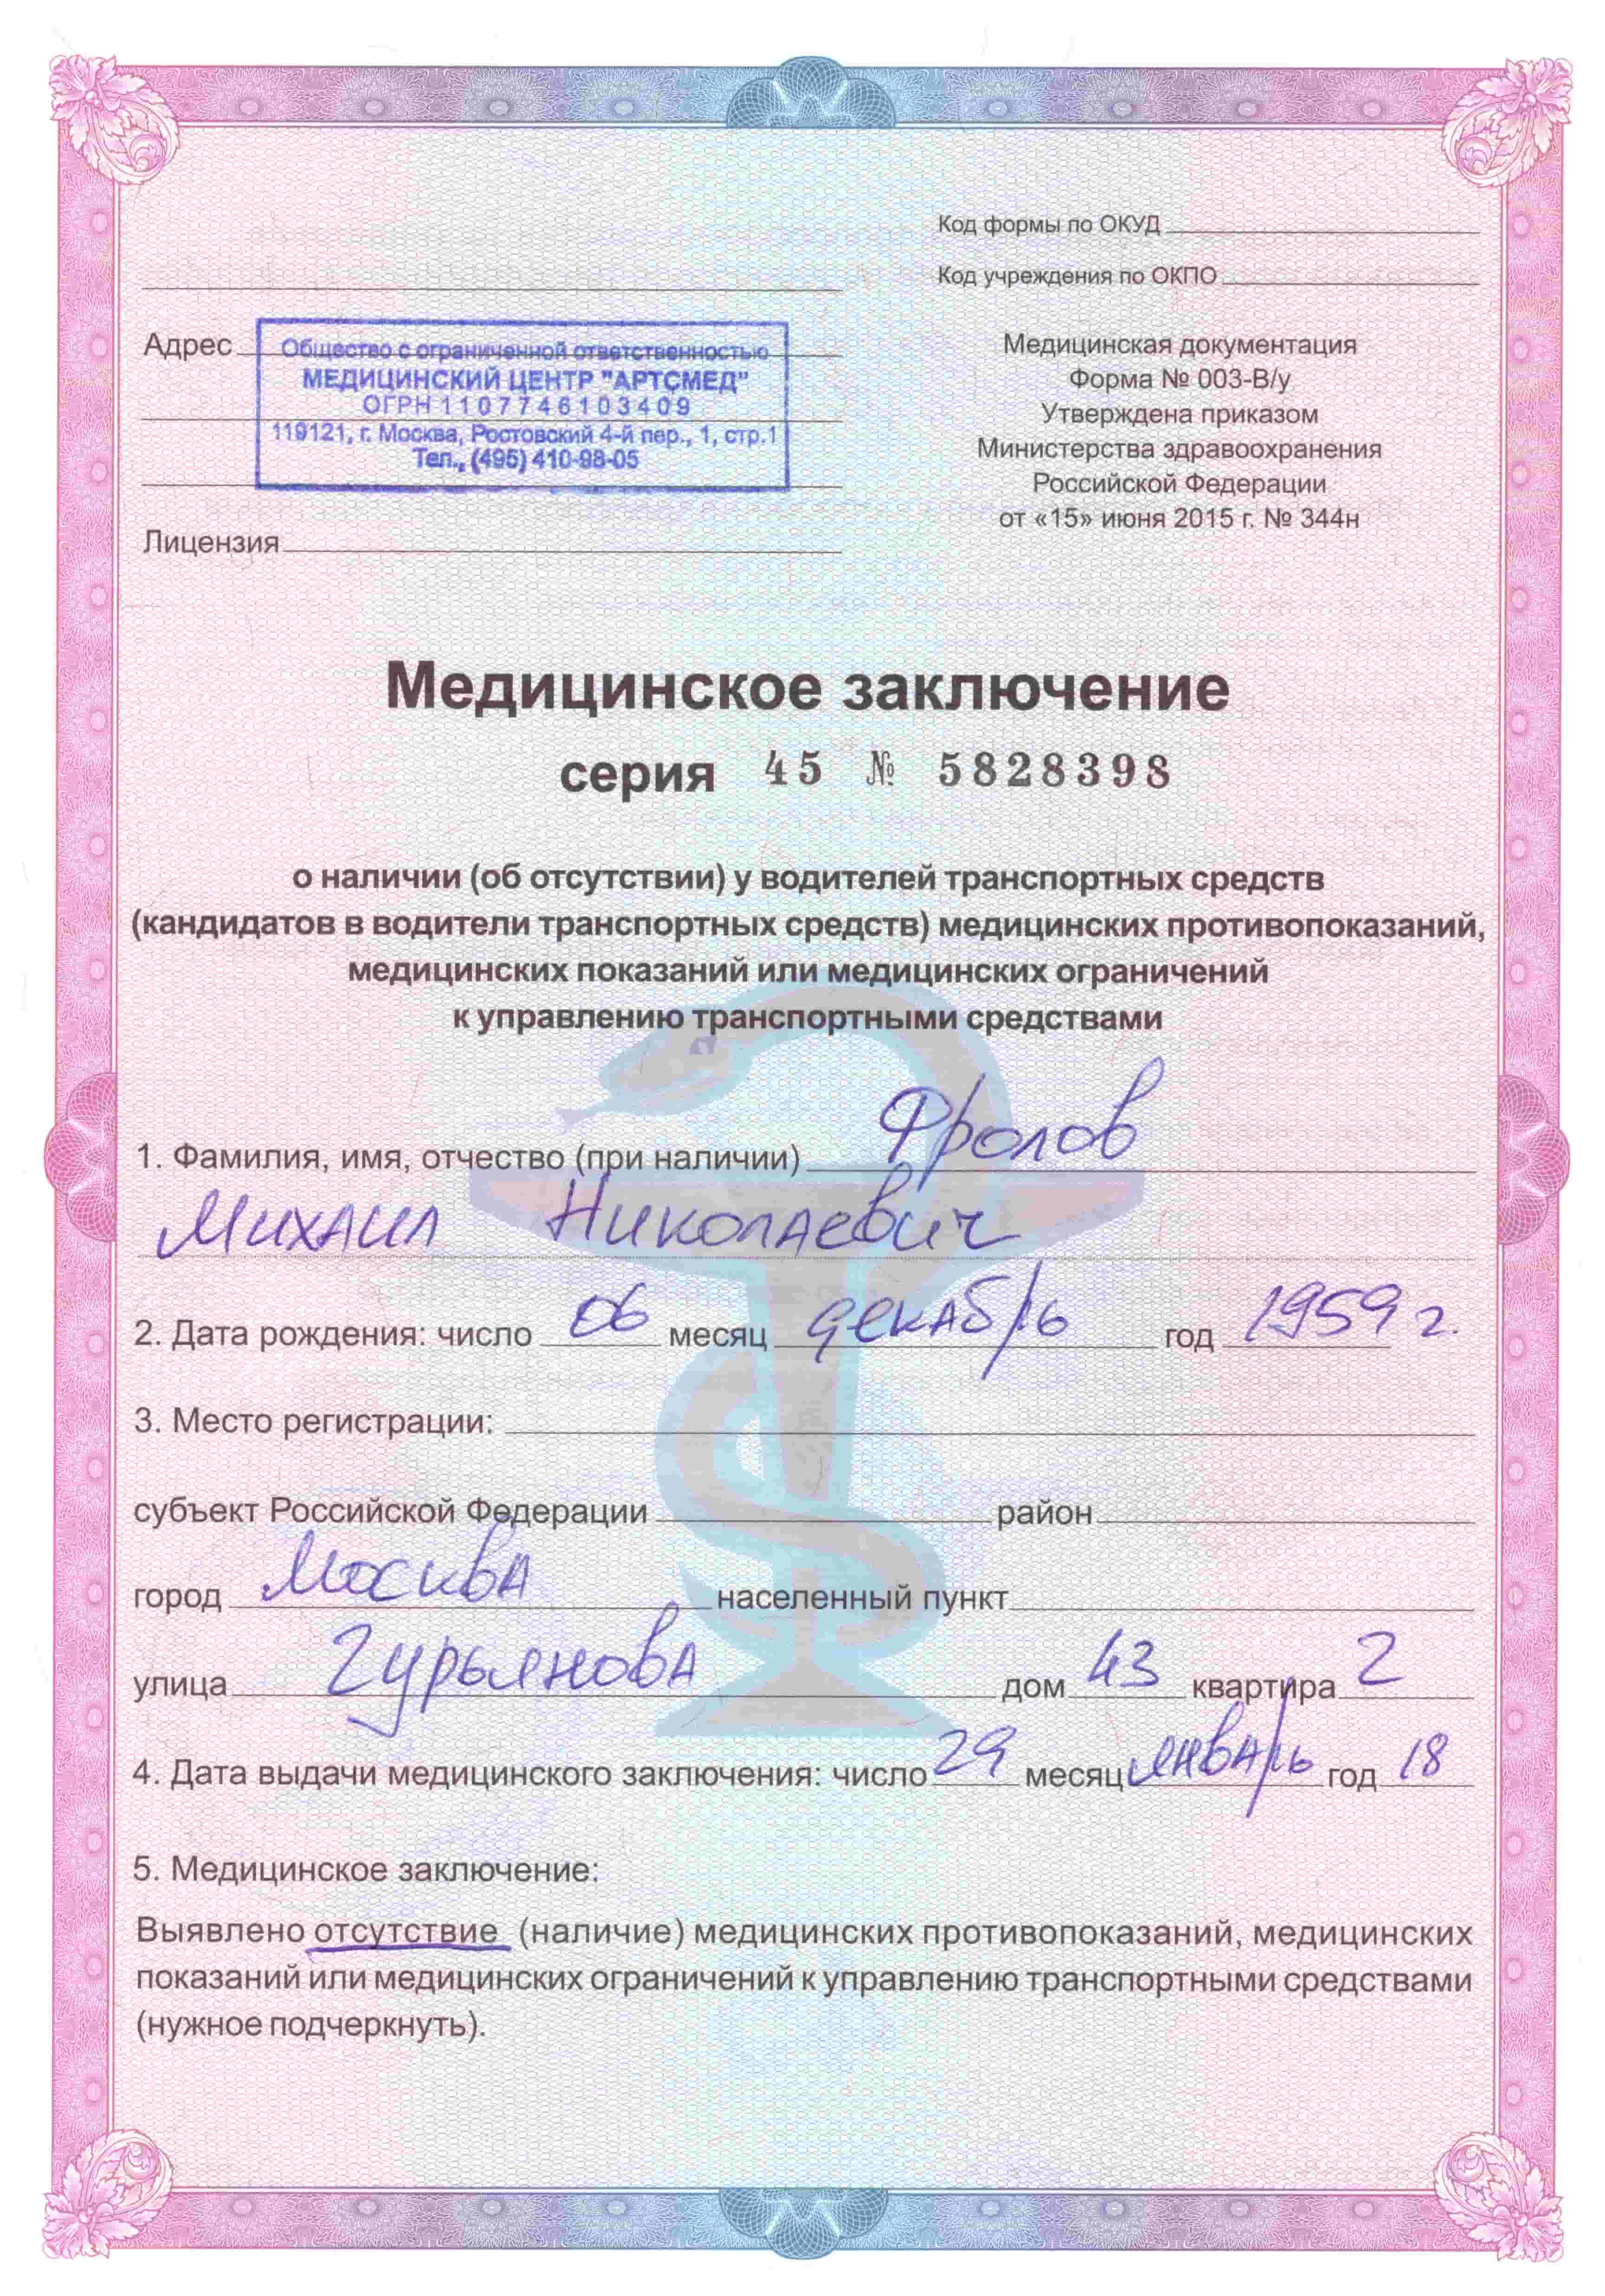 Код формы по ОКУД
Код учреждения по ОКПО
Адрес
Общество с ограниченной ответственностью
МЕДИЦИНСКИЙ ЦЕНТР "АРТСМЕД"
ОГРН 1107746103409
119121, г. Москва, Ростовский 4-й пер., 1, стр.1
Тел., (495) 410-98-05
Лицензия
Медицинская документация
Форма № 003-В/у
Утверждена приказом
Министерства здравоохранения
Российской Федерации
от «15» июня 2015 г. № 344н
Медицинское заключение
серия 45 № 5828398
о наличии (об отсутствии) у водителей транспортных средств
(кандидатов в водители транспортных средств) медицинских противопоказаний,
медицинских показаний или медицинских ограничений
к управлению транспортными средствами
1. Фамилия, имя, отчество (при наличии) Фролов
Михаил Николаевич
2. Дата рождения: число 06 месяц декабрь год 1959 г.
3. Место регистрации:
субъект Российской Федерации район
город Москва населенный пункт
улица Гурьянова дом 43 квартира 2
4. Дата выдачи медицинского заключения: число 29 месяц январь год 18
5. Медицинское заключение:
Выявлено отсутствие (наличие) медицинских противопоказаний, медицинских
показаний или медицинских ограничений к управлению транспортными средствами
(нужное подчеркнуть).